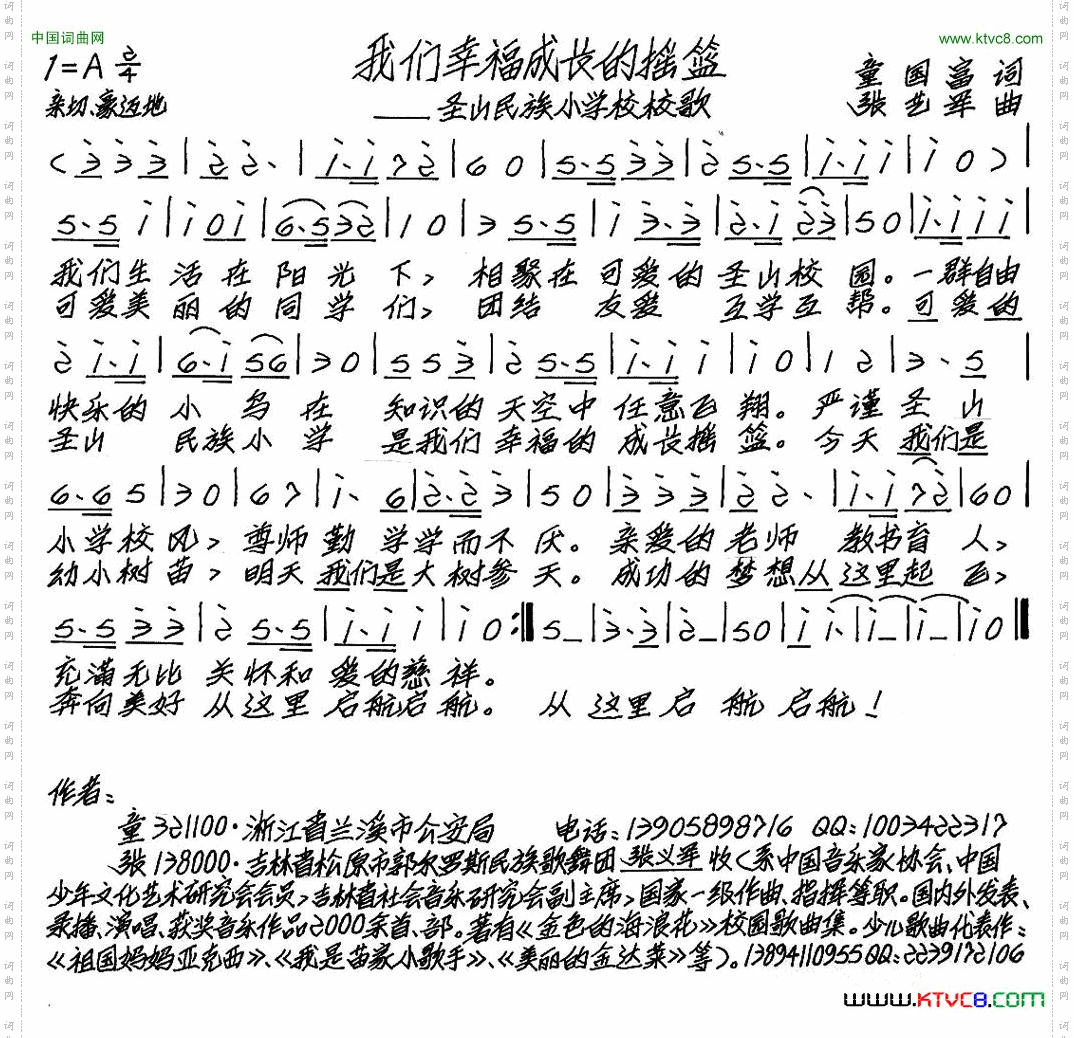 中国词曲网
www.ktvc8.com
1=A 2/4
我们幸福成长的摇篮
童国富 词
亲切、豪迈地
——圣山民族小学校校歌
张艺军 曲
(3̇ 3̇ 3̇ | 2̇ 2̇· | 1̇·1̇ 7 2̇ | 6 0 | 5·5 3̇ 3̇ | 2̇ 5·5 | 1̇·1̇ 1̇ | 1̇ 0) |
5·5 1̇ | 1̇ 0 1̇ | 6·5 3 2 | 1 0 | 3 5·5 | 1̇ 3̇·3̇ | 2̇·1̇ 2̇ 3̇ | 5 0 | 1̇·1̇ 1̇ 1̇ |
我们生活在阳光下，相聚在可爱的圣山校园。一群自由
可爱美丽的同学们，团结友爱互学互帮。可爱的
2̇ 1̇·1̇ | 6·1̇ 5 6 | 3 0 | 5 5 3̇ | 2̇ 5·5 | 1̇·1̇ 1̇ | 1̇ 0 | 1 2 | 3· 5 |
快乐的小鸟在知识的天空中任意飞翔。严谨圣山
圣山民族小学是我们幸福的成长摇篮。今天我们是
6·6 5 | 3 0 | 6 7 | 1̇· 6 | 2̇·2̇ 3̇ | 5 0 | 3̇ 3̇ 3̇ | 2̇ 2̇· | 1̇·1̇ 7 2̇ | 6 0 |
小学校风，尊师勤学学而不厌。亲爱的老师教书育人，
幼小树苗，明天我们是大树参天。成功的梦想从这里起飞，
5·5 3̇ 3̇ | 2̇ 5·5 | 1̇·1̇ 1̇ | 1̇ 0 :‖ 5 – | 3̇·3̇ | 2̇ – | 5 0 | 1̇ 1̇· | 1̇ – | 1̇ – | 1̇ 0 ‖
充满无比关怀和爱的慈祥。
奔向美好从这里启航启航。从这里启航启航！
作者：
童 321100·浙江省兰溪市公安局 电话：13905898716 QQ：1003422317
张 138000·吉林省松原市郭尔罗斯民族歌舞团 张义军 收（系中国音乐家协会、中国
少年文化艺术研究会会员，吉林省社会音乐研究会副主席，国家一级作曲、指挥等职。国内外发表、
录播、演唱、获奖音乐作品2000余首、部。著有《金色的海浪花》校园歌曲集。少儿歌曲代表作：
《祖国妈妈亚克西》、《我是苗家小歌手》、《美丽的金达莱》等）。13894110955 QQ：2239172106
www.KTVC8.com